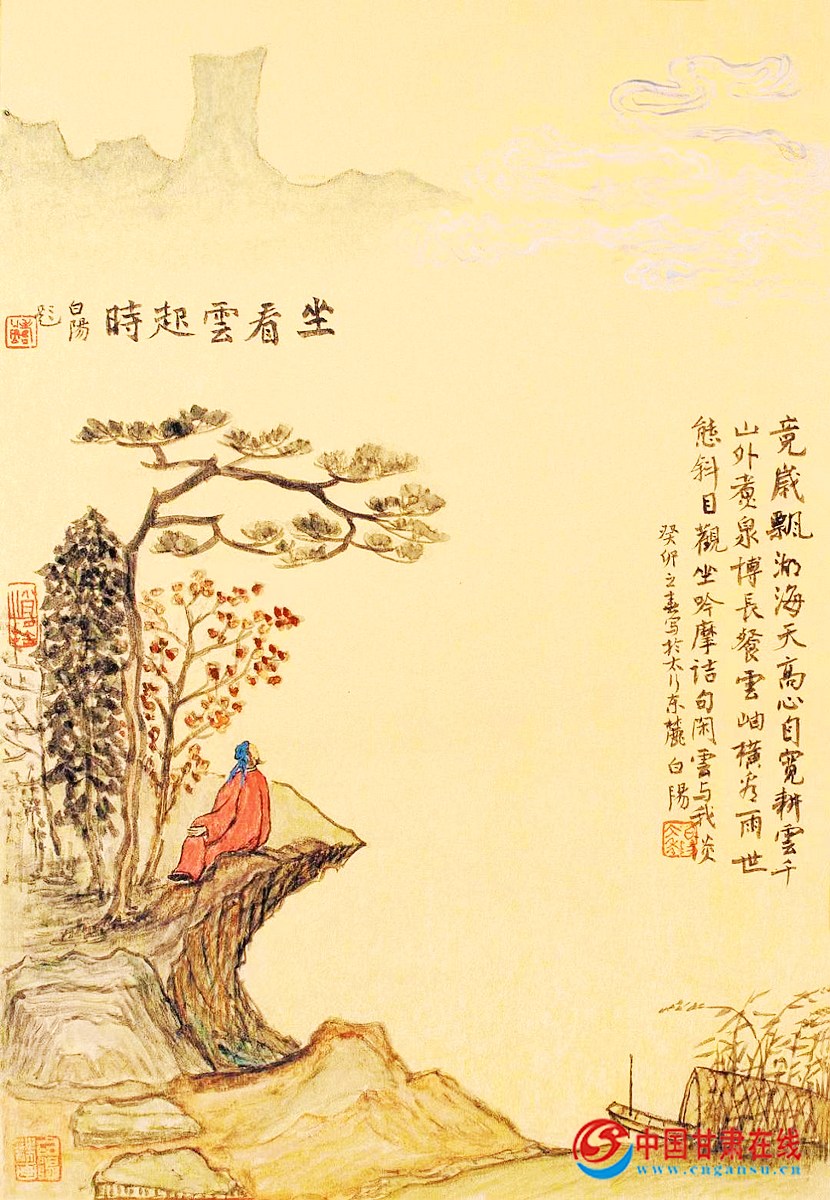 坐看雲起時
白陽
題
竟歲飄湖海天高心自寬耕雲千
山外煮泉博長餐雲岫橫看雨世
態斜目觀坐吟摩詰句閑雲与我談
癸卯之春写於太行东麓白陽
中国甘肃在线
www.cngansu.cn